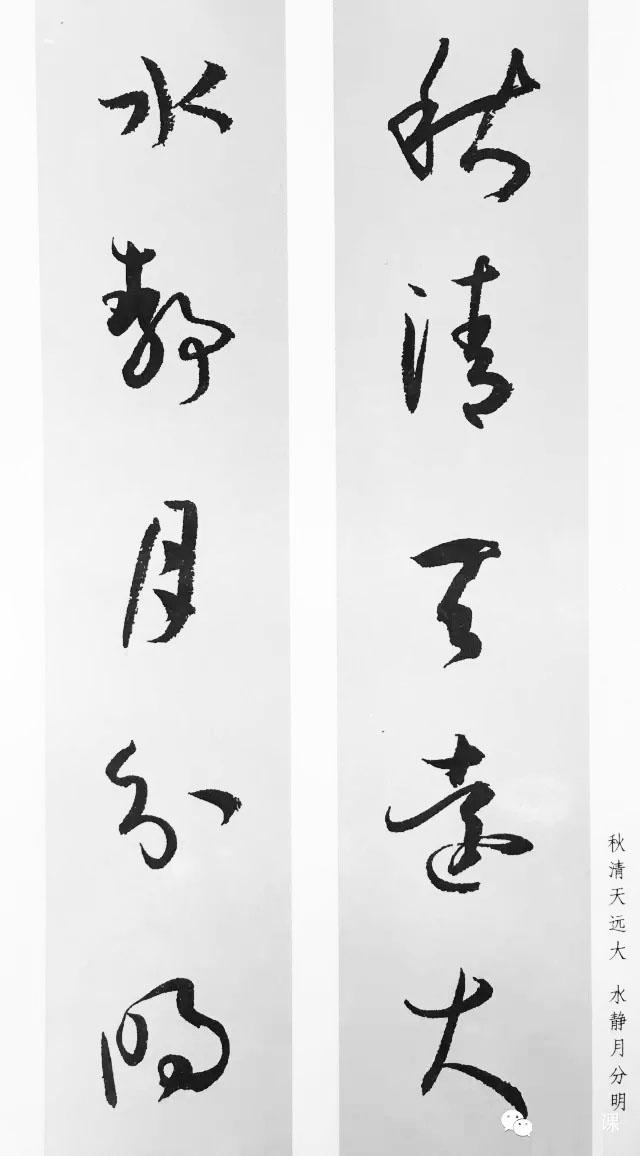 秋清天遠大
水靜月分明
秋清天远大 水静月分明
课